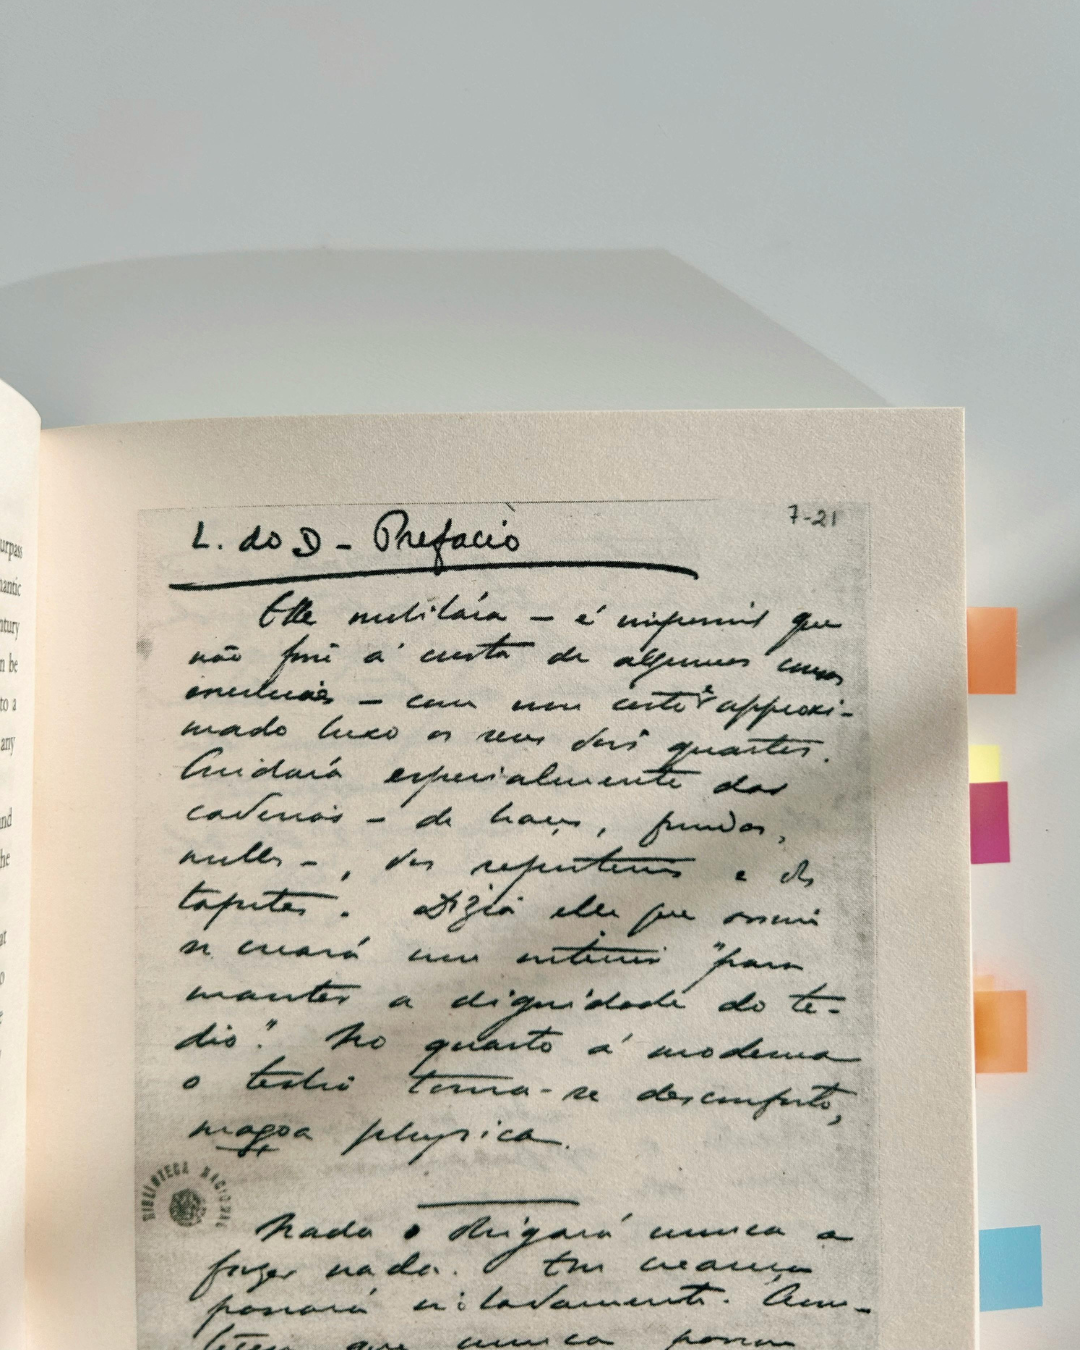 urpass
mantic
ntury
n be
to a
any
nd
he
at
o
e
L. do D - Prefacio
7-21
Elle mobilára - é impossivel que
não fosse á custa de algumas cousas
essenciaes - com um certo e approxi-
mado luxo os seus dois quartos.
Cuidára especialmente das
cadeiras - de braços, fundas,
molles -, dos reposteiros e dos
tapetes. Dizia elle que assim
se creára um interior "para
manter a dignidade do te-
dio". No quarto á moderna
o tedio torna-se desconforto,
magoa physica.
BIBLIOTECA NACIONAL
Nada o obrigára nunca a
fazer nada. Em creança
passára isoladamente. Acon-
teceu que nunca passou